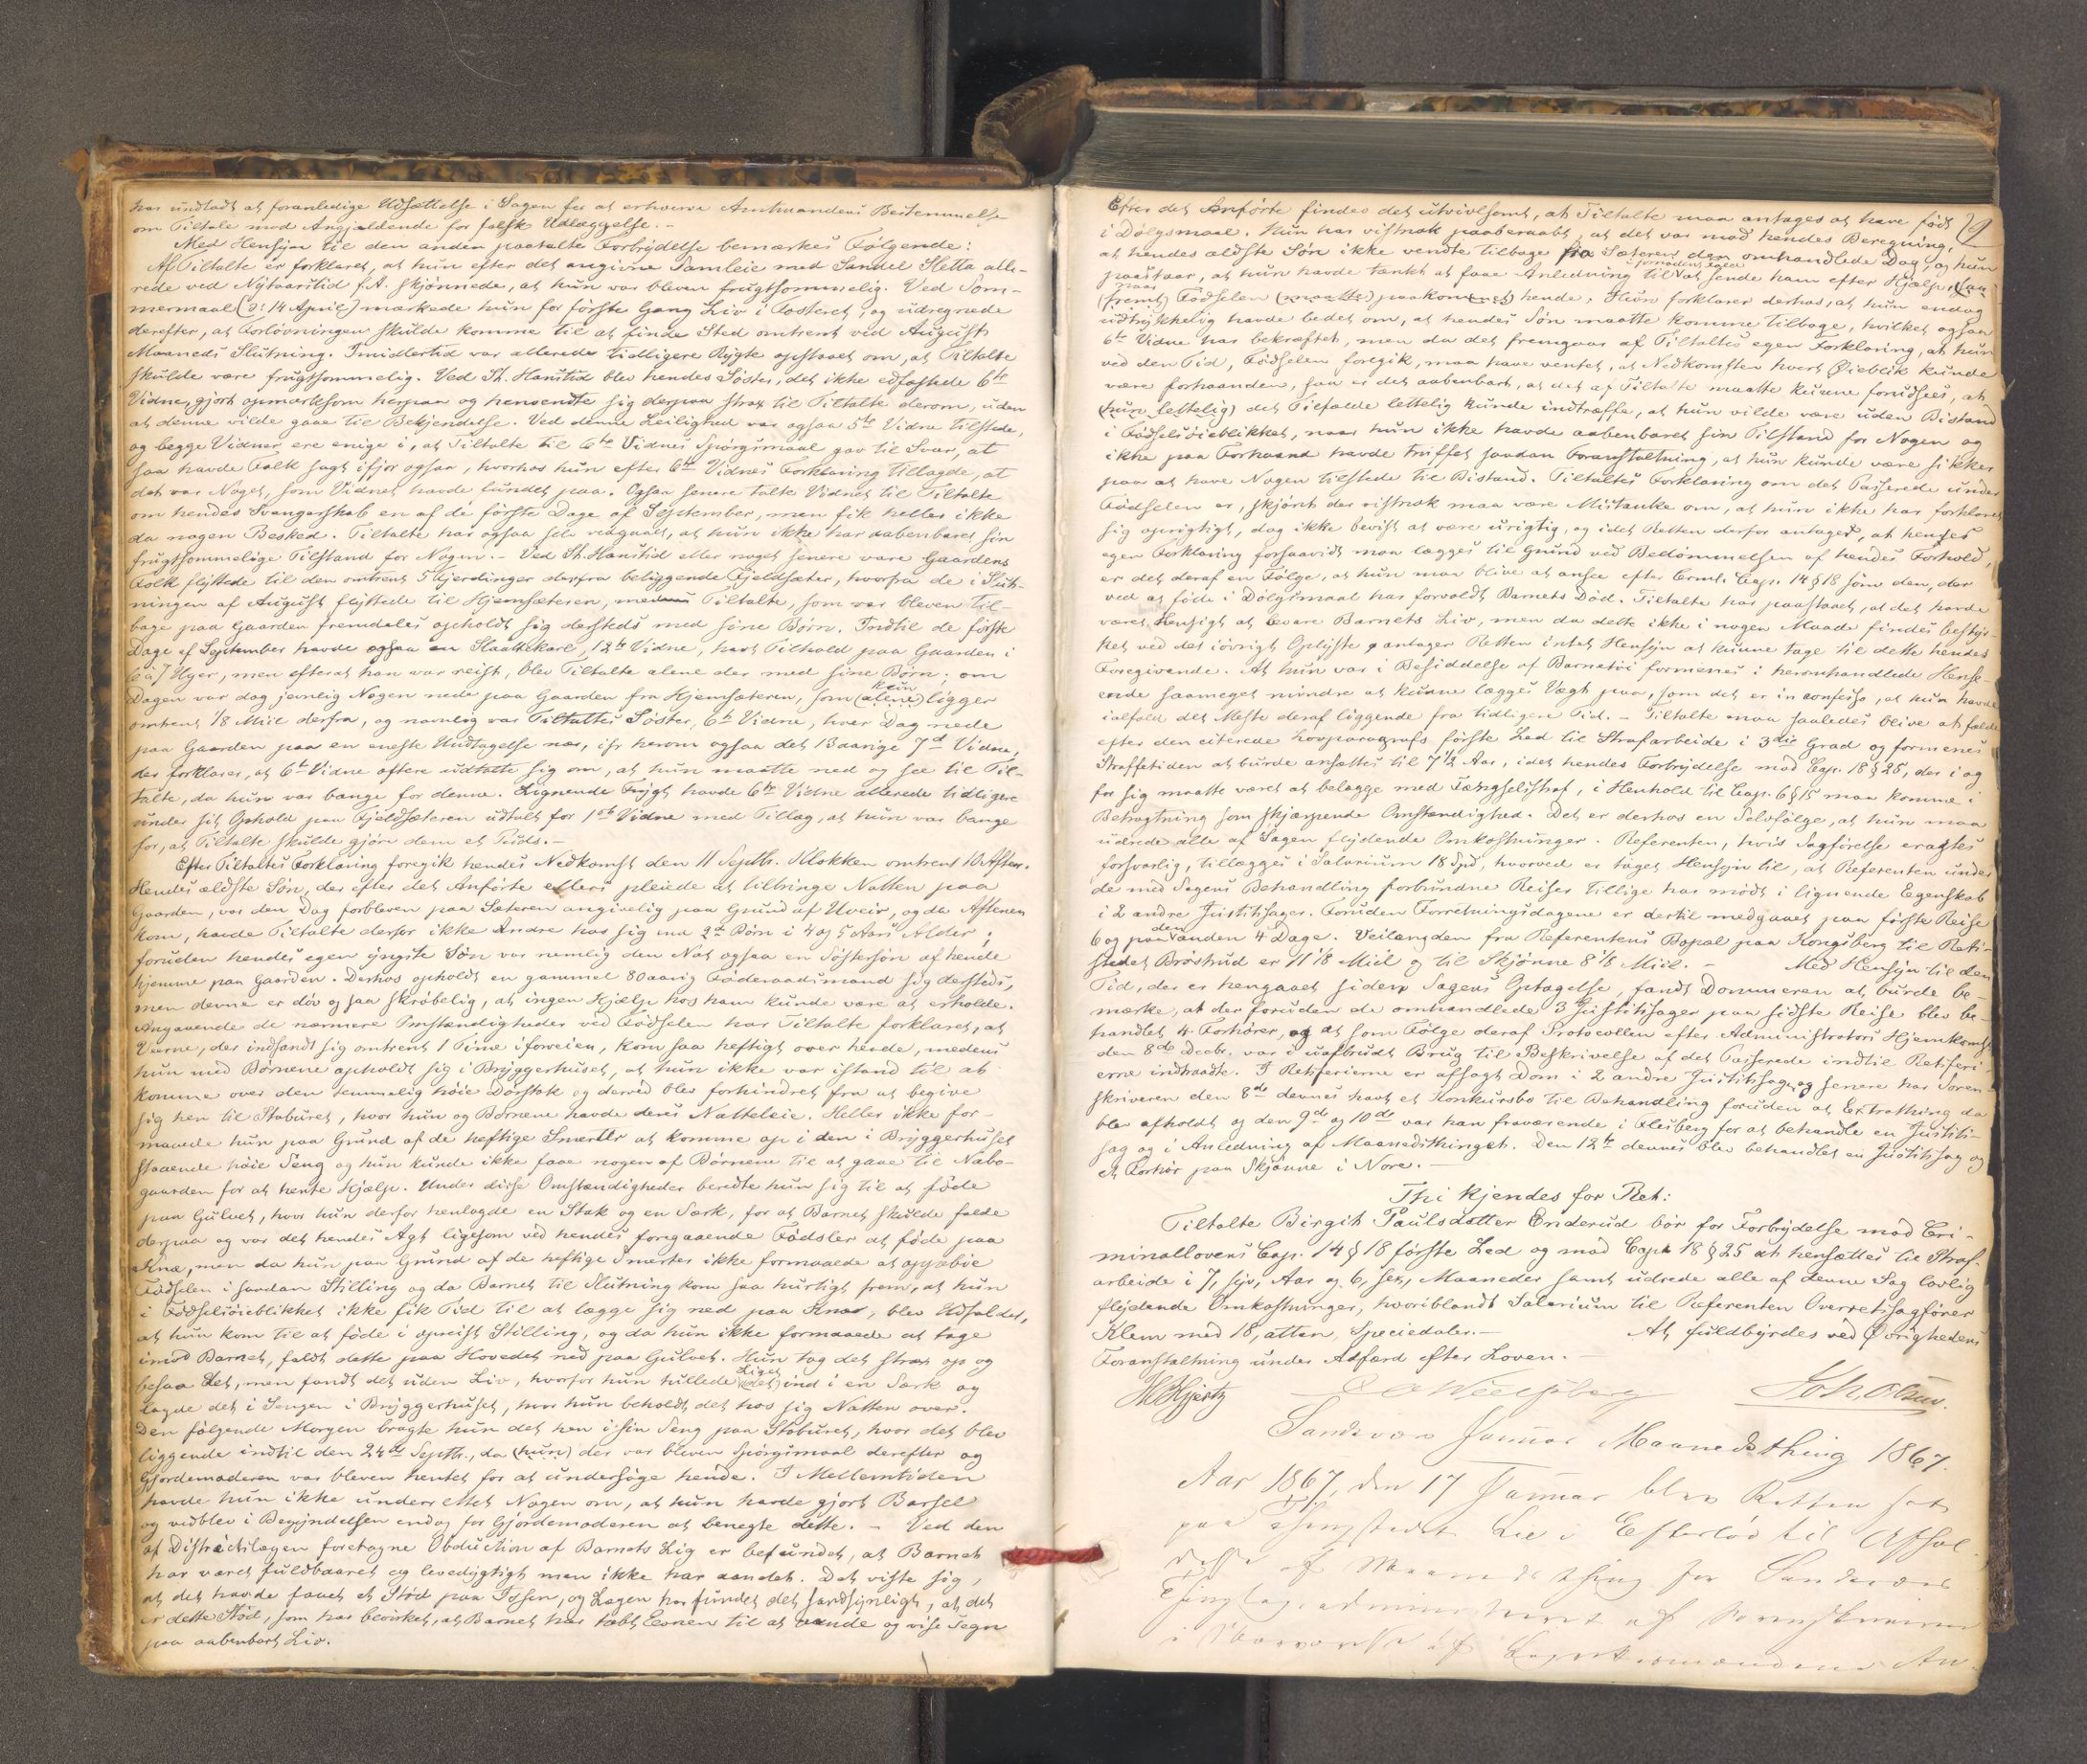 har undladt at foranledige Udsættelse i Sagen for at erhverve Amtmandens Bestemmelse
om Tiltale mod Angjældende for falsk Udlæggelse. –
Med Hensyn til den anden paatalte Forbrydelse bemærkes Følgende:
Af Tiltalte er forklaret, at hun efter det angivne Samleie med Sandel Sletta alle-
rede ved Nytaarstid f.A. skjønnede, at hun var bleven frugtsommelig. Ved Som-
mermaal (ɔ: 14 April) mærkede hun for første Gang Liv i Fosteret, og udregnede
derefter, at Forløvningen skulde komme til at finde Sted omtrent ved August
Maaneds Slutning. Imidlertid var allerede tidligere Rygte opstaaet om, at Tiltalte
skulde være frugtsommelig. Ved St. Hanstid blev hendes Søster, det ikke edfæstede 6te
Vidne, gjort opmærksom herpaa og henvendte sig derpaa strax til Tiltalte derom, uden
at denne vilde gaae til Bekjendelse. Ved denne Leilighed var ogsaa 5te Vidne tilstede,
og begge Vidner ere enige i, at Tiltalte til 6te Vidnes Spørgsmaal gav til Svar, at
saa havde Folk sagt ifjor ogsaa, hvorhos hun efter 6te Vidnes Forklaring tillagde, at
det var Noget, som Vidnet havde fundet paa. Ogsaa senere talte Vidnet til Tiltalte
om hendes Svangerskab en af de første Dage af September, men fik heller ikke
da nogen Besked. Tiltalte har ogsaa selv vedgaaet, at hun ikke har aabenbaret sin
frugtsommelige Tilstand for Nogen. – Ved St. Hanstid eller noget senere vare Gaardens
Folk flyttede til den omtrent 5 Fjerdinger derfra beliggende Fjeldsæter, hvorfra de i Slut-
ningen af August flyttede til Hjemsæteren, medens Tiltalte, som var bleven til-
bage paa Gaarden fremdeles opholdt sig dersteds med sine Børn. Indtil de første
Dage af September havde ogsaa en Slaattekarl, 12te Vidne, havt Tilhold paa Gaarden i
6 à 7 Uger, men efterat han var reist, blev Tiltalte alene der med sine Børn; om
Dagen var dog jevnlig Nogen nede paa Gaarden fra Hjemsæteren, som (alene) kun ligger
omtrent 1/8 Miil derfra, og navnlig var Tiltaltes Søster, 6te Vidne, hver Dag nede
paa Gaarden paa en eneste Undtagelse nær, cfr herom ogsaa det 13aarige 7d Vidne,
der forklarer, at 6te Vidne oftere udtalte sig om, at hun maatte ned og see til Til-
talte, da hun var bange for denne. Lignende Frygt havde 6te Vidne allerede tidligere
under sit Ophold paa Fjeldsæteren udtalt for 1ste Vidne med Tillæg, at hun var bange
for, at Tiltalte skulde gjøre dem et Puds. –
Efter Tiltaltes Forklaring foregik hendes Nedkomst den 11 Septbr. Klokken omtrent 10 Aften.
Hendes ældste Søn, der efter det Anførte ellers pleiede at tilbringe Natten paa
Gaarden, var den Dag forbleven paa Sæteren angivelig paa Grund af Uveir, og da Aftenen
kom, havde Tiltalte derfor ikke Andre hos sig end 2de Børn i 4 og 5 Aars Alder;
foruden hendes egen yngste Søn var nemlig den Nat ogsaa en Søstersøn af hende
hjemme paa Gaarden. Derhos opholdt en gammel 80aarig Føderaadsmand sig dersteds,
men denne er døv og saa skrøbelig, at ingen Hjælp hos ham kunde være at erholde.
Angaaende de nærmere Omstændigheder ved Fødselen har Tiltalte forklaret, at
Veerne, der indfandt sig omtrent 1 Time iforveien, kom saa heftigt over hende, medens
hun med Børnene opholdt sig i Bryggerhuset, at hun ikke var istand til at
komme over den temmelig høie Dørstok og derved blev forhindret fra at begive
sig hen til Staburet, hvor hun og Børnene havde deres Natteleie. Heller ikke for-
maaede hun paa Grund af de heftige Smerter at komme op i den i Bryggerhuset
staaende høie Seng og hun kunde ikke faae nogen af Børnene til at gaae til Nabo-
gaarden for at hente Hjælp. Under disse Omstændigheder beredte hun sig til at føde
paa Gulvet, hvor hun derfor henlagde en Stak og en Særk, for at Barnet skulde falde
derpaa og var det hendes Agt ligesom ved hendes foregaaende Fødsler at føde paa
Knæ, men da hun paa Grund af de heftige Smerter ikke formaaede at oppebie
Fødselen i saadan Stilling og da Barnet til Slutning kom saa hurtigt frem, at hun
i Fødselsøieblikket ikke fik Tid til at lægge sig ned paa Knæ, blev Udfaldet,
at hun kom til at føde i opreist Stilling, og da hun ikke formaaede at tage
imod Barnet, faldt dette paa Hovedet ned paa Gulvet. Hun tog det strax op og
besaa det, men fandt det uden Liv, hvorfor hun hullede (det) Liget ind i en Særk og
lagde det i Sengen i Bryggerhuset, hvor hun beholdt det hos sig Natten over.
Den følgende Morgen bragte hun det hen i sin Seng paa Staburet, hvor det blev
liggende indtil den 24de Septbr., da (hun) der var bleven Spørgsmaal derefter og
Gjordemoderen var bleven hentet for at undersøge hende. I Mellemtiden
havde hun ikke underrettet Nogen om, at hun havde gjort Barsel
og vedblev i Begyndelsen endog for Gjordemoderen at benegte dette. – Ved den
af Distriktslægen foretagne Obduction af Barnets Lig er befundet, at Barnet
har været fuldbaaret og levedygtigt men ikke har aandet. Det viste sig,
at det havde faaet et Stød paa Issen, og Lægen har fundet det sandsynligt, at det
er dette Stød, som har bevirket, at Barnet har tabt Evnen til at aande og vise Tegn
paa aabenbart Liv.
Efter det Anførte findes det utvivlsomt, at Tiltalte maa antages at have født
i Dølgsmaal. Hun har vistnok paaberaabt, at det var mod hendes Beregning,
at hendes ældste Søn ikke vendte tilbage fra Sæteren den omhandlede Dag, og hun
paastaar, at hun havde tænkt at faae Anledning til i fornødent Fald at sende ham efter Hjælp,
(fremt) naar Fødselen (maatte) paakom(met) hende. Hun forklarer derhos, at hun endog
udtrykkelig havde bedet om, at hendes Søn maatte komme tilbage, hvilket ogsaa
6te Vidne har bekræftet, men da det fremgaar af Tiltaltes egen Forklaring, at hun
ved den Tid, Fødselen foregik, maa have ventet, at Nedkomsten hvert Øieblik kunde
være forhaanden, saa er det aabenbart, at det af Tiltalte maatte kunne forudsees, at
(hun lettelig) det Tilfælde lettelig kunde indtræffe, at hun vilde være uden Bistand
i Fødselsøieblikket, naar hun ikke havde aabenbaret sin Tilstand for Nogen og
ikke paa Forhaand havde truffet saadan Foranstaltning, at hun kunde være sikker
paa at have Nogen tilstede til Bistand. Tiltaltes Forklaring om det Passerede under
Fødselen er, skjønt der vistnok maa være Mistanke om, at hun ikke har forklaret
sig oprigtigt, dog ikke bevist at være urigtig, og idet Retten derfor antager, at hendes
egen Forklaring forsaavidt maa lægges til Grund ved Bedømmelsen af hendes Forhold,
er det deraf en Følge, at hun maa blive at ansee efter Crml. Cap. 14 § 18 som den, der
ved at føde i Dølgsmaal har forvoldt Barnets Død. Tiltalte har paastaaet, at det havde
været Hensigt at bevare Barnets Liv, men da dette ikke i nogen Maade findes bestyr-
ket ved det iøvrigt Oplyste antager Retten intet Hensyn at kunne tage til dette hendes
Foregivende. At hun var i Besiddelse af Barnetøi formenes i heromhandlede Hense-
ende saameget mindre at kunne lægges Vægt paa, som det er in confesso, at hun havde
ialfald det Meste deraf liggende fra tidligere Tid. – Tiltalte maa saaledes blive at fælde
efter den citerede Lovparagrafs første Led til Strafarbeide i 3die Grad og formenes
Straffetiden at burde ansættes til 7 1/2 Aar, idet hendes Forbrydelse mod Cap. 18 § 25, der i og
for sig maatte været at belægge med Fængselsstraf, i Henhold til Cap. 6 § 15 maa komme i
Betragtning som skjærpende Omstændighed. Det er derhos en Selvfølge, at hun maa
udrede alle af Sagen flydende Omkostninger. Referenten, hvis Sagførelse eragtes
forsvarlig, tillægges i Salarium 18 Spd, hvorved er taget Hensyn til, at Referenten under
de med Sagens Behandling forbundne Reiser tillige har mødt i lignende Egenskab
i 2 andre Justitssager. Foruden Forretningsdagene er dertil medgaaet paa første Reise
6 og paa den anden 4 Dage. Veilængden fra Referentens Bopæl paa Kongsberg til Ret-
stedet Brøstrud er 11 1/8 Miil og til Skjønne 8 1/8 Miil. – Med Hensyn til den
Tid, der er hengaaet siden Sagens Optagelse, fandt Dommeren at burde be-
mærke, at der foruden de omhandlede 3 Justitssager paa sidste Reise blev be-
handlet 4 Forhører, og at som Følge deraf Protocollen efter Administrators Hjemkomst
den 8de Decbr. var i uafbrudt Brug til Beskrivelse af det Passerede indtil Retsferi-
erne indtraadte. I Retsferierne er afsagt Dom i 2 andre Justitssager, og senere har Soren-
skriveren den 8de dennes havt et Konkursbo til Behandling foruden at Extrathing da
blev afholdt og den 9de og 10de var han fraværende i Flesberg for at behandle en Justits-
sag og i Anledning af Maanedsthinget. Den 12te dennes blev behandlet en Justitssag og
et Forhør paa Skjønne i Nore. –
Thi kjendes for Ret:
Tiltalte Birgit Paulsdatter Enderud bør for Forbrydelse mod Cri-
minallovens Cap. 14 § 18 første Led og mod Cap. 18 § 25 at hensættes til Straf-
arbeide i 7, syv, Aar og 6, sex, Maaneder samt udrede alle af denne Sag lovlig
flydende Omkostninger, hvoriblandt Salarium til Referenten Overretssagfører
Klem med 18, atten, Speciedaler. – At fuldbyrdes ved Øvrighedens
Foranstaltning under Adfærd efter Loven. –
Sandsvær Januar Maanedsthing 1867.
Aar 1867, den 17 Januar blev Retten sat
paa Thingstedet Lie i Efteløt til Afhol
delse af Maanedsthing for Sandsvær
Thinglag, administreret af Sorenskriveren
i Overværelse af